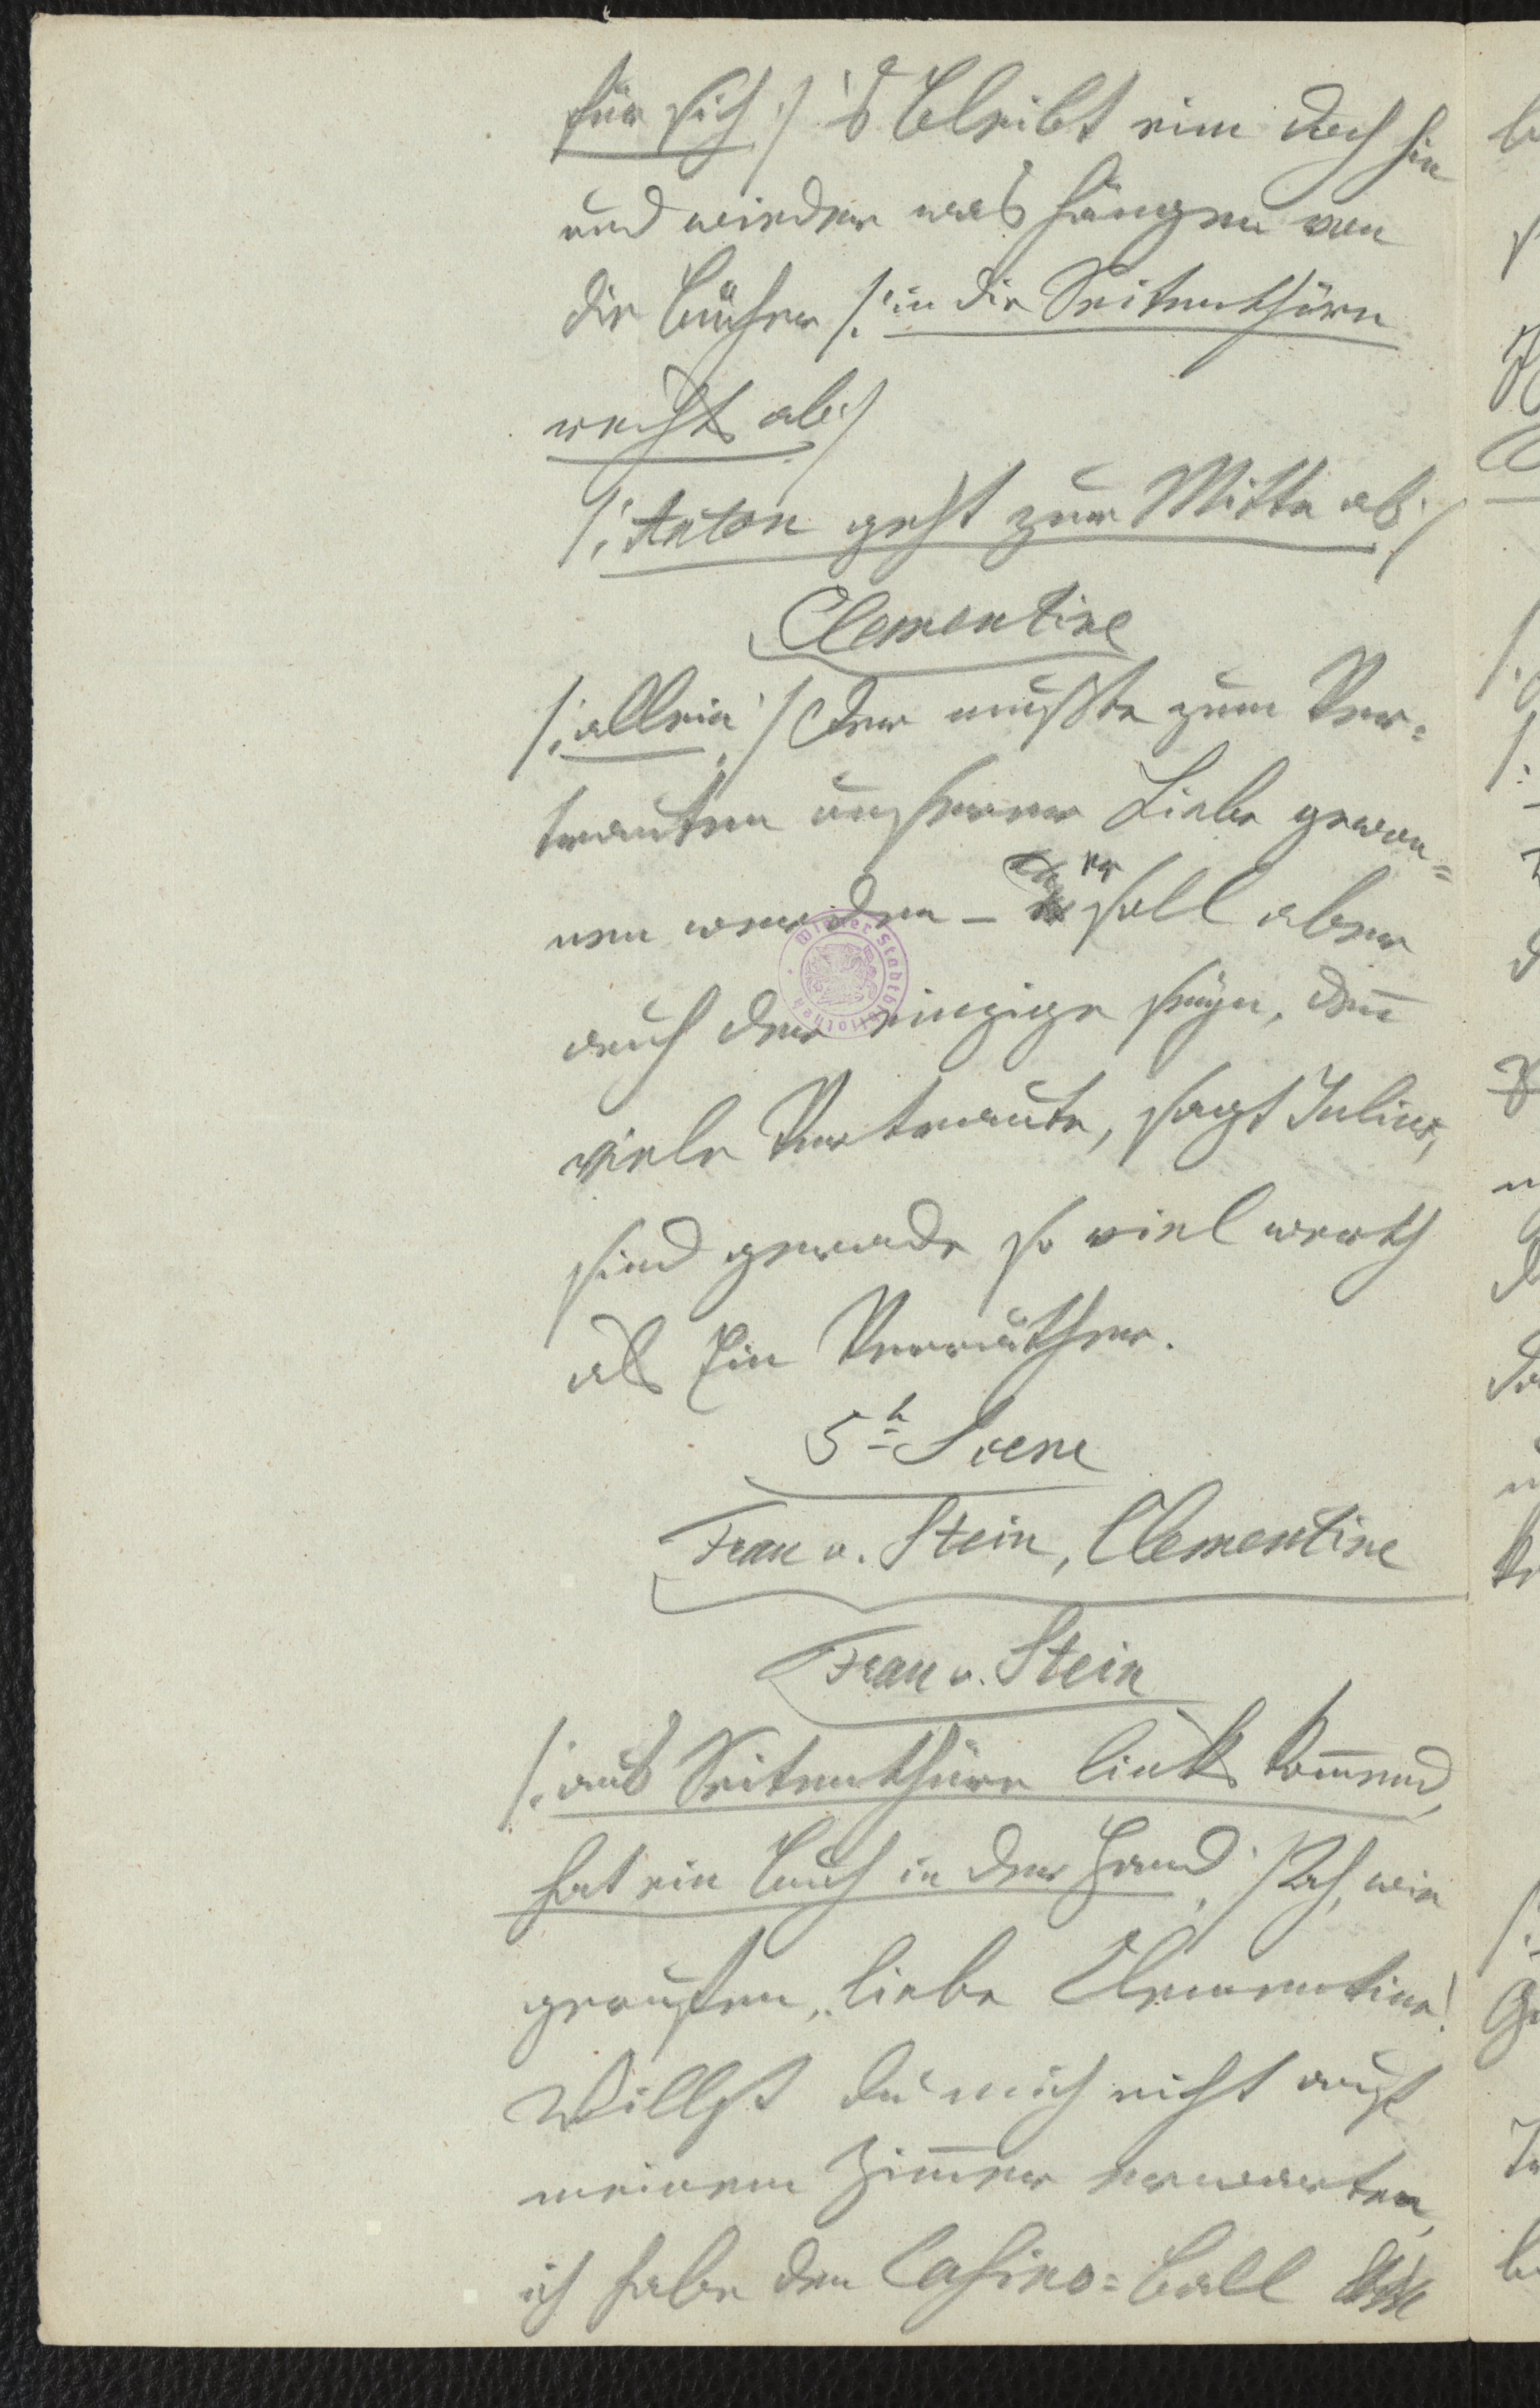 für sich:/ 's bleibt eim doch hin
und wieder was hängen von
die Bücher /:in die Seitenthüre
rechts ab:/
/:Anton geht zur Mitte ab:/
Clementine
/:allein:/ Der mußte zum Ver=
trauten unserer Liebe gewon=
nen werden – er soll aber
auch der einzige seyn, deñ
viele Vertraute, sagt Julius,
sind gerade so viel werth
als Ein Verräther.
5te Scene
Frau v. Stein, Clementine
Frau v. Stein
/:aus Seitenthüre links kom̄end,
hat ein Buch in der Hand:/ Ah, wie
gerufen, liebe Clementine!
Willst du mich nicht auf
meinem Zim̄er erwarten,
ich habe den Casino=Ball
Wiener Stadtbibliothek